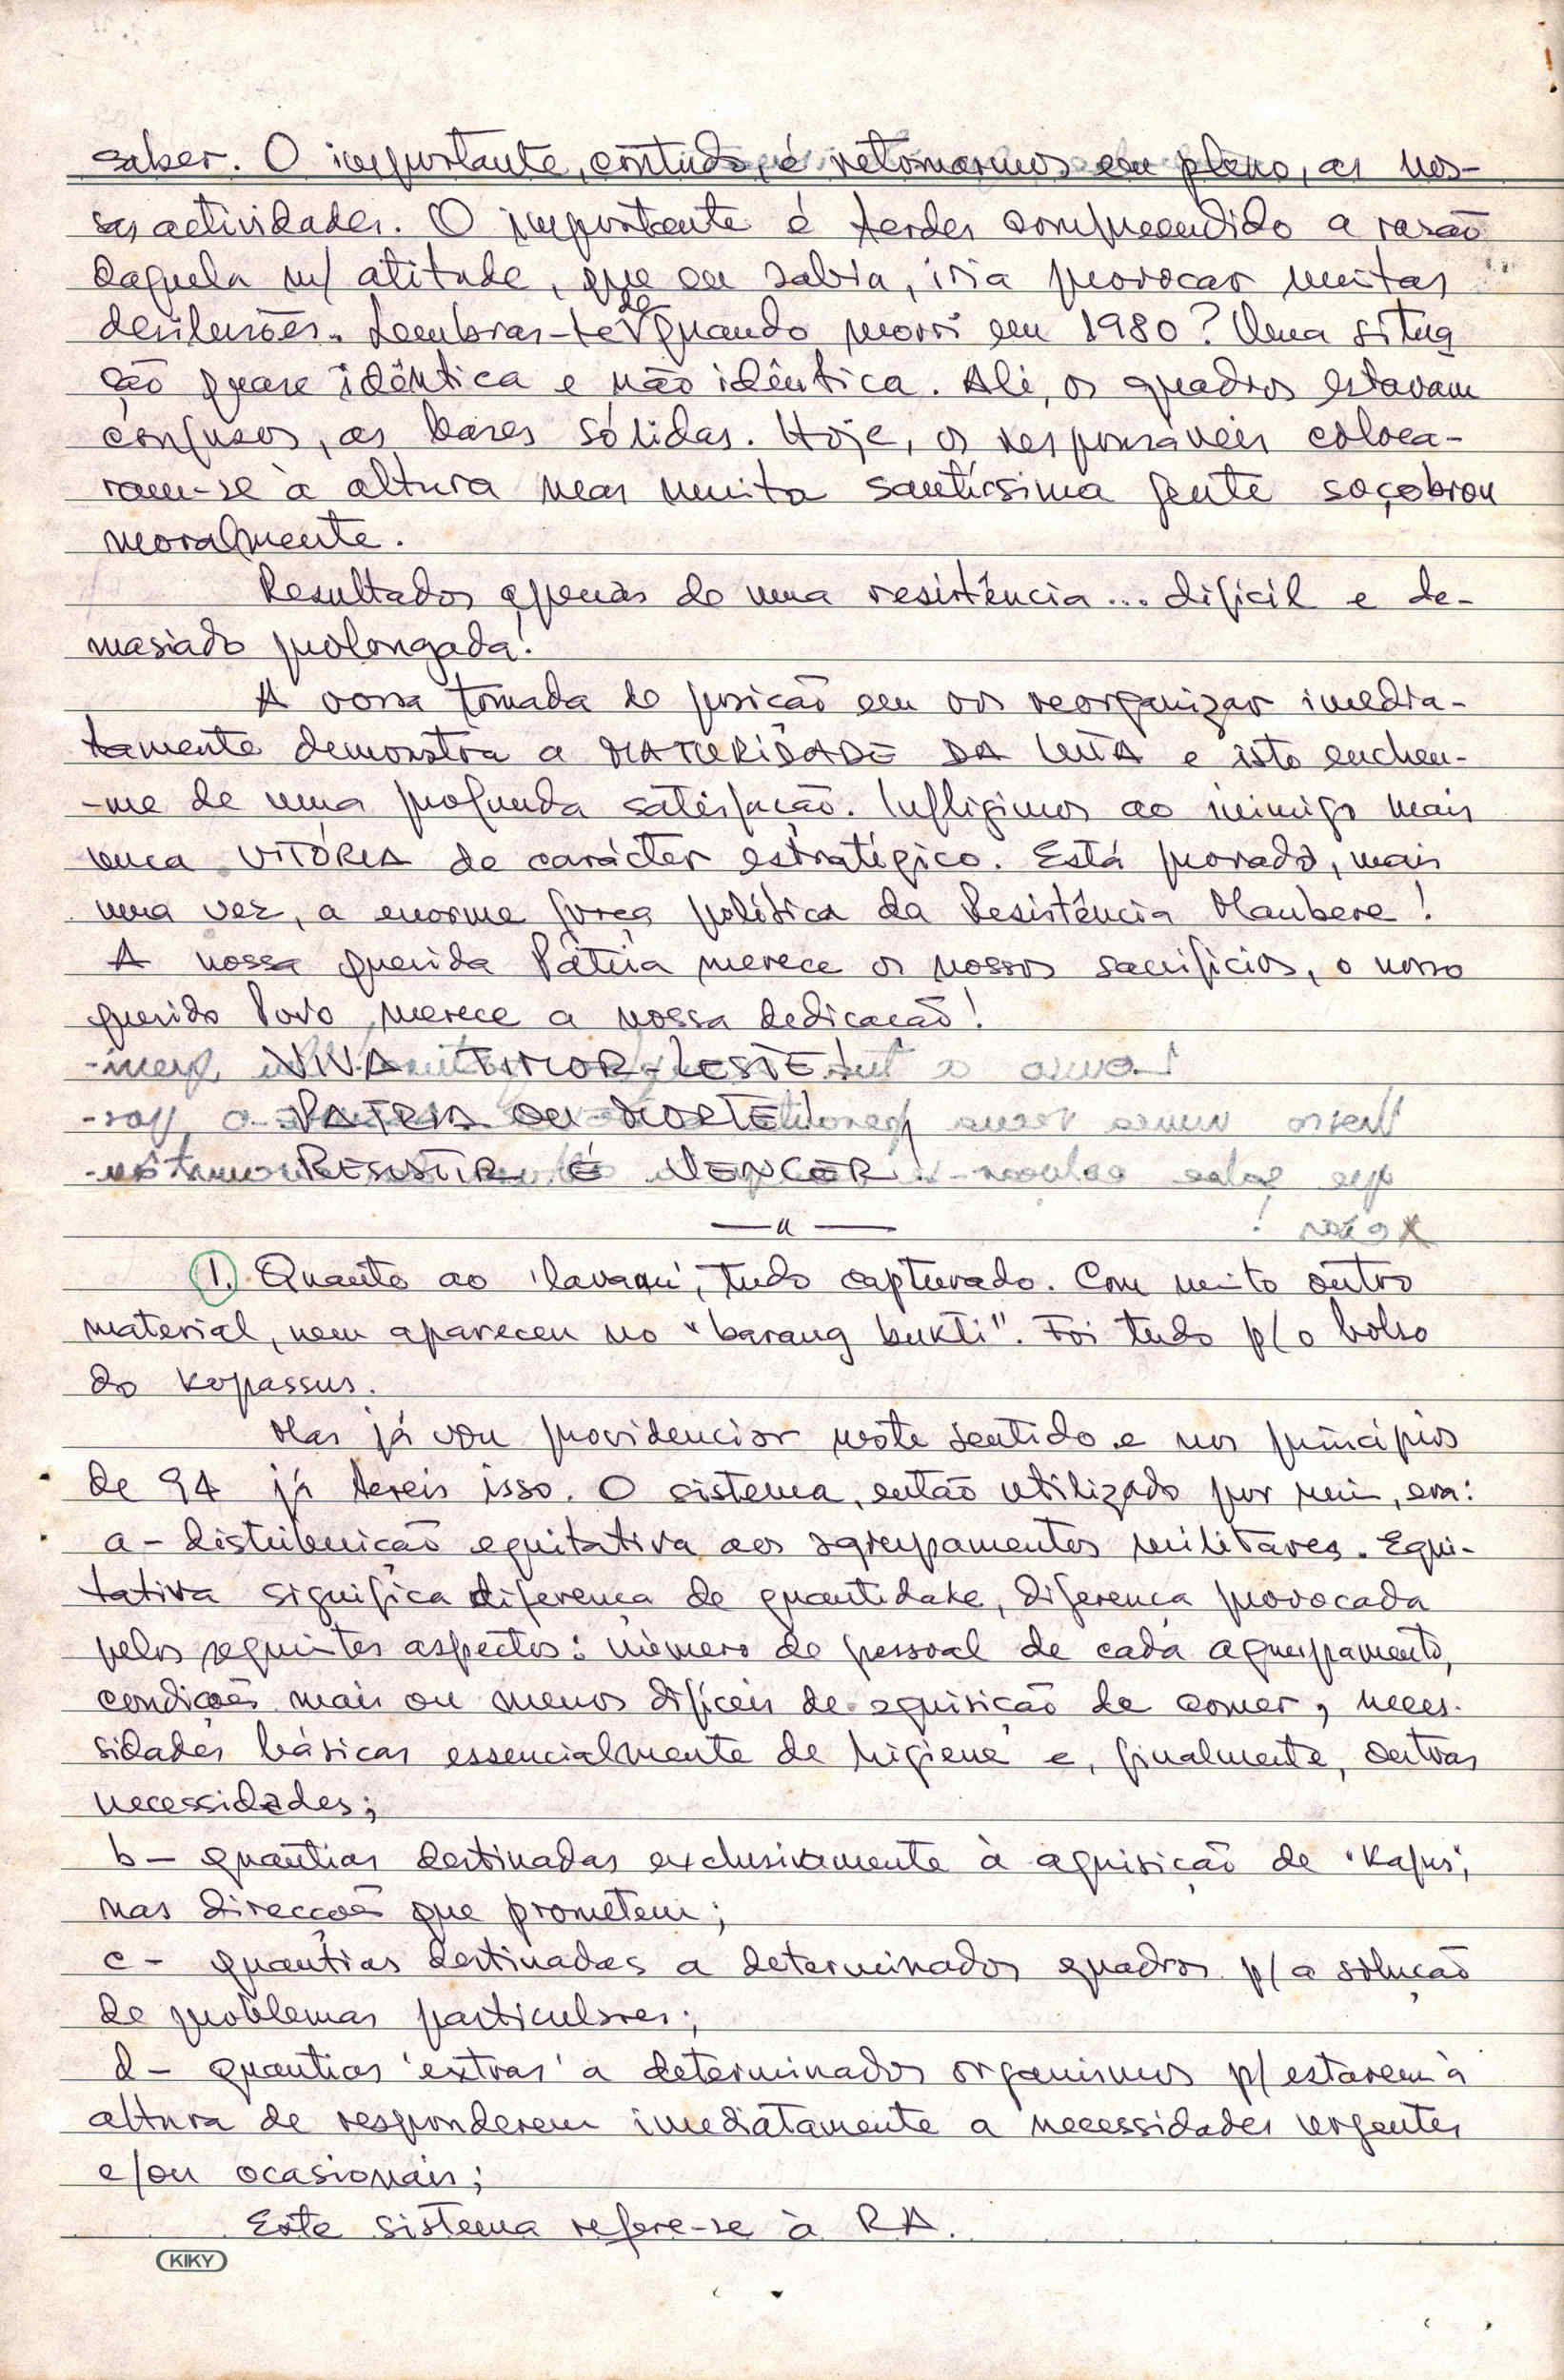 saber. O importante, contudo, é retomarmos em pleno, as nos-
sas actividades. O importante é terdes compreendido a razão
daquela m/ atitude, que eu sabia, iria provocar muitas
desilusões. Lembras-te de quando morri em 1980? Uma situa
ção quase idêntica e não idêntica. Ali, os quadros estavam
confusos, as bases sólidas. Hoje, os responsáveis coloca-
ram-se à altura mas muita santíssima gente soçobrou
moralmente.
Resultados apenas de uma resistência... difícil e de-
masiado prolongada!
A vossa tomada de posição em vos reorganizar imedia-
tamente demonstra a MATURIDADE DA LUTA e isto encheu-
-me de uma profunda satisfação. Infligimos ao inimigo mais
uma VITÓRIA de carácter estratégico. Está provado, mais
uma vez, a enorme força política da Resistência Maubere!
A nossa querida Pátria merece os nossos sacrifícios, o nosso
querido Povo merece a nossa dedicação!
VIVA TIMOR-LESTE!
PATRIA OU MORTE!
RESISTIR É VENCER!
— " —
1. Quanto ao 'lavam', tudo capturado. Com muito outro
material, nem apareceu no "barang bukti". Foi tudo p/ o bolso
do kopassus.
Mas já vou providenciar neste sentido e nos princípios
de 94 já tereis isso. O sistema, então utilizado por mim, era:
a - distribuição equitativa aos agrupamentos militares. Equi-
tativa significa diferença de quantidade, diferença provocada
pelos seguintes aspectos: número de pessoal de cada agrupamento,
condições mais ou menos difíceis de aquisição de comer, neces-
sidades básicas essencialmente de higiene e, finalmente, outras
necessidades;
b - quantias destinadas exclusivamente à aquisição de 'kapus',
nas direcções que prometem;
c - quantias destinadas a determinados quadros p/ a solução
de problemas particulares;
d - quantias 'extras' a determinados organismos p/ estarem à
altura de responderem imediatamente a necessidades urgentes
e/ou ocasionais;
Este sistema refere-se à RA.
KIKY